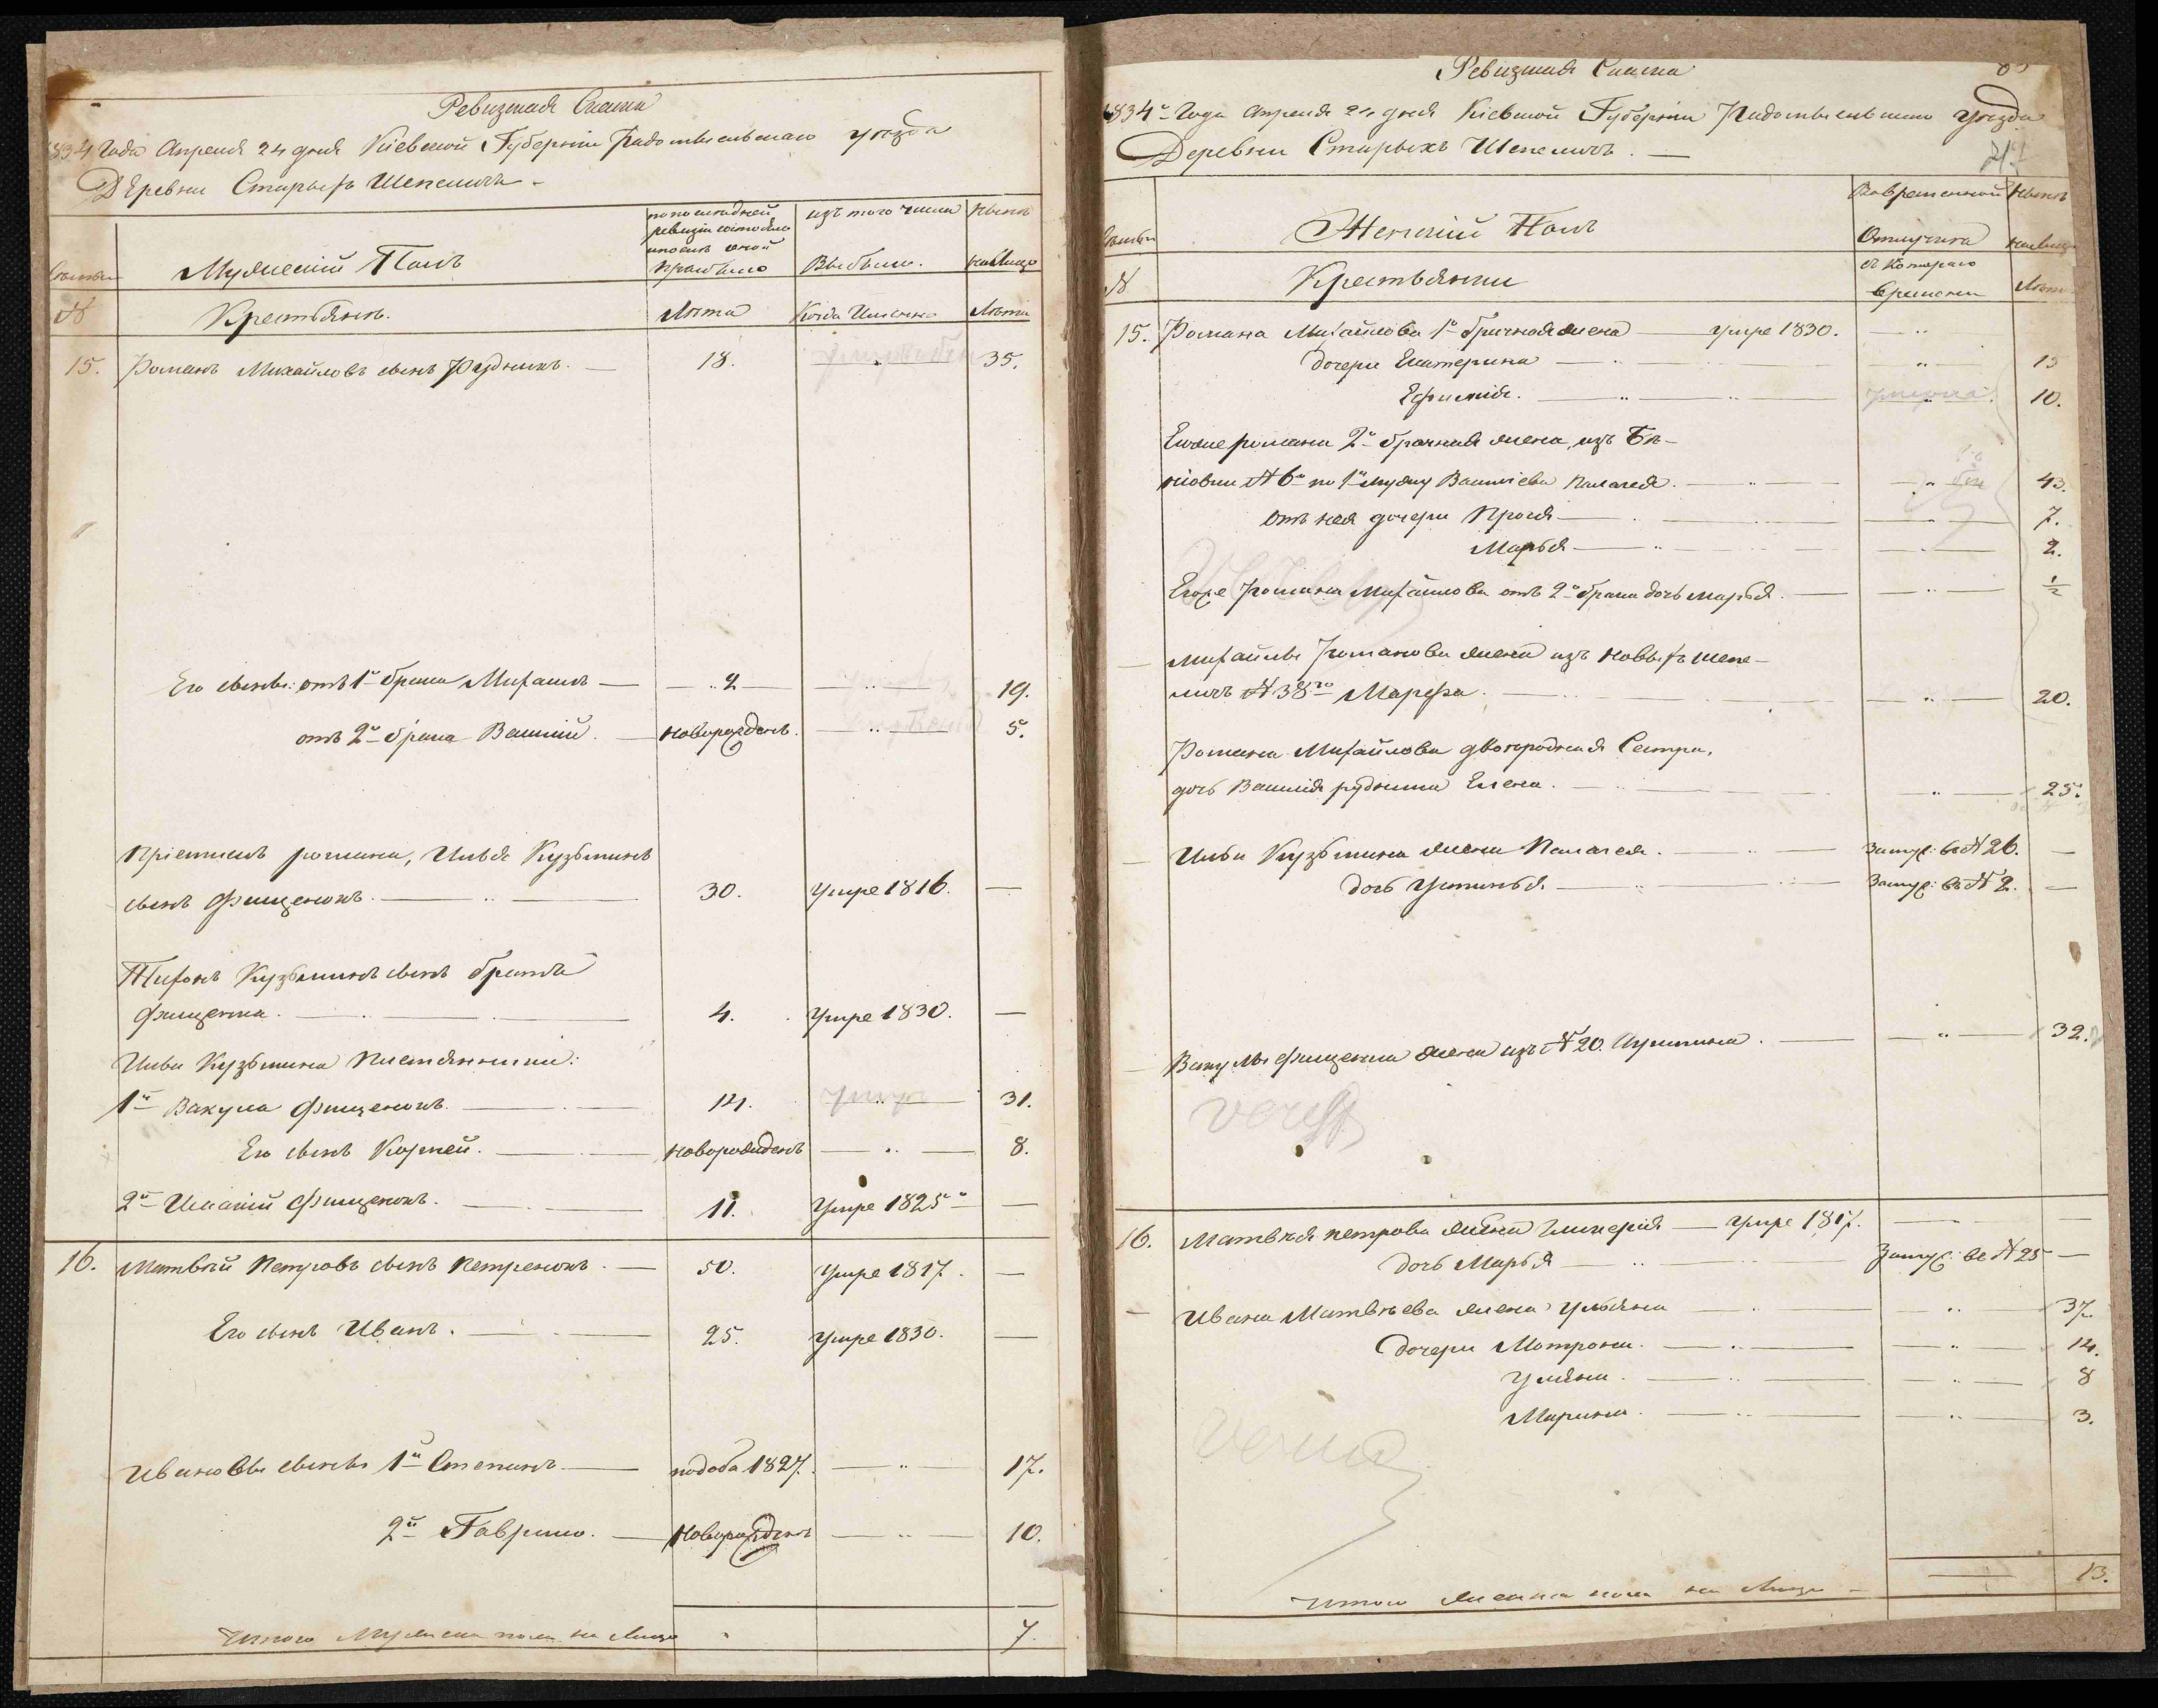 Ревизская Сказка
1834 Года Апреля 24 дня Кіевской Губерніи Радомысльскаго уезда
Деревни Старыхъ Шепеличъ
Семьи
Мужескій Полъ
по последней
ревизіи состояло
и после оной
прибыло
изъ того числа
Выбыло.
Ныне
на лицо
№
Крестьяне.
Лета
Когда Именно
Лета
15. Романъ Михайловъ сынъ Рудникъ. 18. 35.
Его сынъ: отъ 1го брака Михаилъ 2 19.
отъ 2го брака Василій. новорожденъ. 5.
Пріемышъ романа, Илья Кузьминъ
сынъ Фищенокъ. 30. Умре 1816. —
Тихонъ Кузьминъ сынъ братъ
Фищенка. 4. Умре 1830. —
Ильи Кузьмина племянники:
1й Вакула Фищенокъ. 14. умре 31.
Его сынъ Корней. новорожденъ 8.
2й Игнатій Фищенокъ. 11. Умре 1825го —
16. Матвей Петровъ сынъ Петренокъ. 50. Умре 1817. —
Его сынъ Иванъ. 25. Умре 1830. —
Ивановы сыновья 1й Степанъ 1827. 17.
2й Гаврило. Новорожденъ 10.
Итого Мужеска пола на лицо 7.
Ревизская Сказка
1834го Года Апреля 24 дня Кіевской Губерніи Радомысльскаго уезда
Деревни Старыхъ Шепеличъ.
Семьи
Женскій Полъ
Во временной
Отлучке
Ныне
на лицо
№
Крестьянки
съ Котораго
Времени
Лета
15. Романа Михайлова 1го брачная жена умре 1830.
дочери Екатерина 15
Ефимія. умерла 10.
Егоже романа 2го брачная жена, изъ Бе-
№ 6го по 1му мужу Палагея. 43.
отъ нея дочери 7.
Марья 2.
Егоже Романа Михайлова отъ 2го брака дочь марья. ½
Михайлы Романова жена изъ Новыхъ Шепе-
личъ № 38го Марфа. 20.
Романа Михайлова двоюродная Сестра,
дочь Василія рудника Елена. 25.
Ильи Кузьмина жена Палагея. Замуж: въ № 26. —
дочь Устинья. Замуж: въ № 2. —
Вакулы Фищенка жена изъ № 20. 32.
16. Матвея петрова жена Гликерія умре 1817. —
дочь Марья Замуж: въ № 25 —
Ивана Матвеева жена Ульяна 37.
дочери Мотрона. 14.
Уляна. 8
Марина. 3.
Итого женска пола на лицо 13.